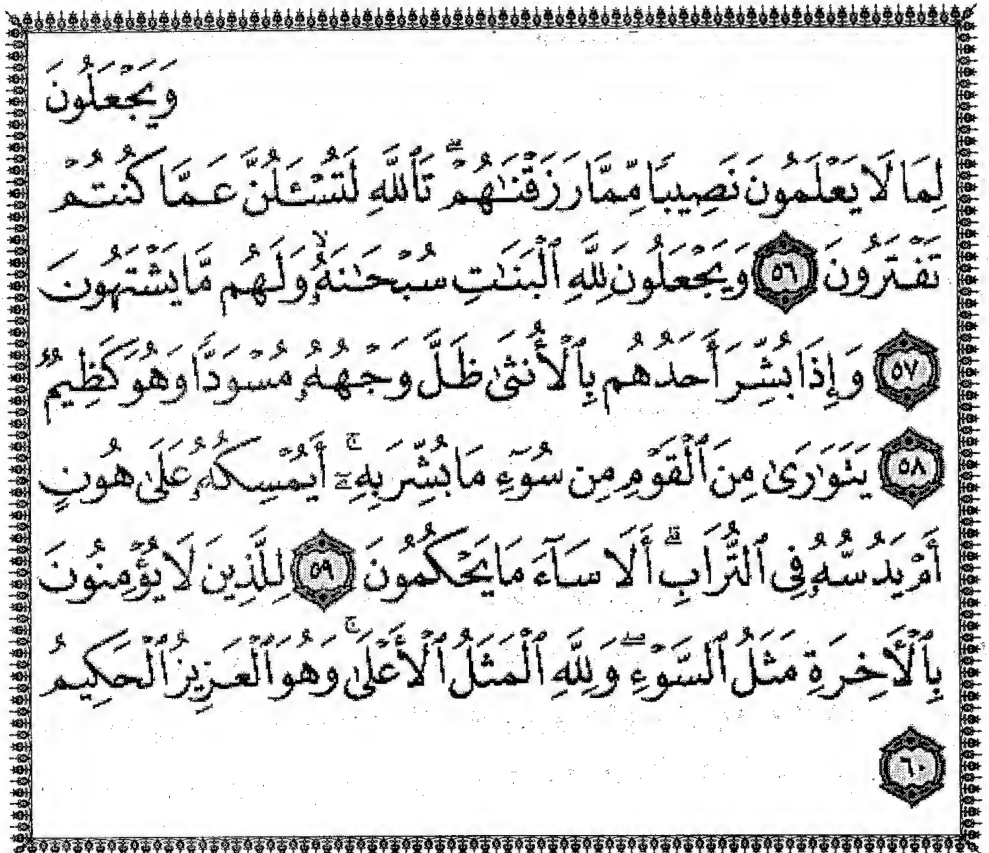 وَيَجْعَلُونَ
لِمَا لَا يَعْلَمُونَ نَصِيبًا مِّمَّا رَزَقْنَٰهُمْ ۗ تَٱللَّهِ لَتُسْـَٔلُنَّ عَمَّا كُنتُمْ
تَفْتَرُونَ ٥٦ وَيَجْعَلُونَ لِلَّهِ ٱلْبَنَٰتِ سُبْحَٰنَهُۥ ۙ وَلَهُم مَّا يَشْتَهُونَ
٥٧ وَإِذَا بُشِّرَ أَحَدُهُم بِٱلْأُنثَىٰ ظَلَّ وَجْهُهُۥ مُسْوَدًّا وَهُوَ كَظِيمٌ
٥٨ يَتَوَٰرَىٰ مِنَ ٱلْقَوْمِ مِن سُوٓءِ مَا بُشِّرَ بِهِۦٓ ۚ أَيُمْسِكُهُۥ عَلَىٰ هُونٍ
أَمْ يَدُسُّهُۥ فِى ٱلتُّرَابِ ۗ أَلَا سَآءَ مَا يَحْكُمُونَ ٥٩ لِلَّذِينَ لَا يُؤْمِنُونَ
بِٱلْءَاخِرَةِ مَثَلُ ٱلسَّوْءِ ۖ وَلِلَّهِ ٱلْمَثَلُ ٱلْأَعْلَىٰ ۚ وَهُوَ ٱلْعَزِيزُ ٱلْحَكِيمُ
٦٠